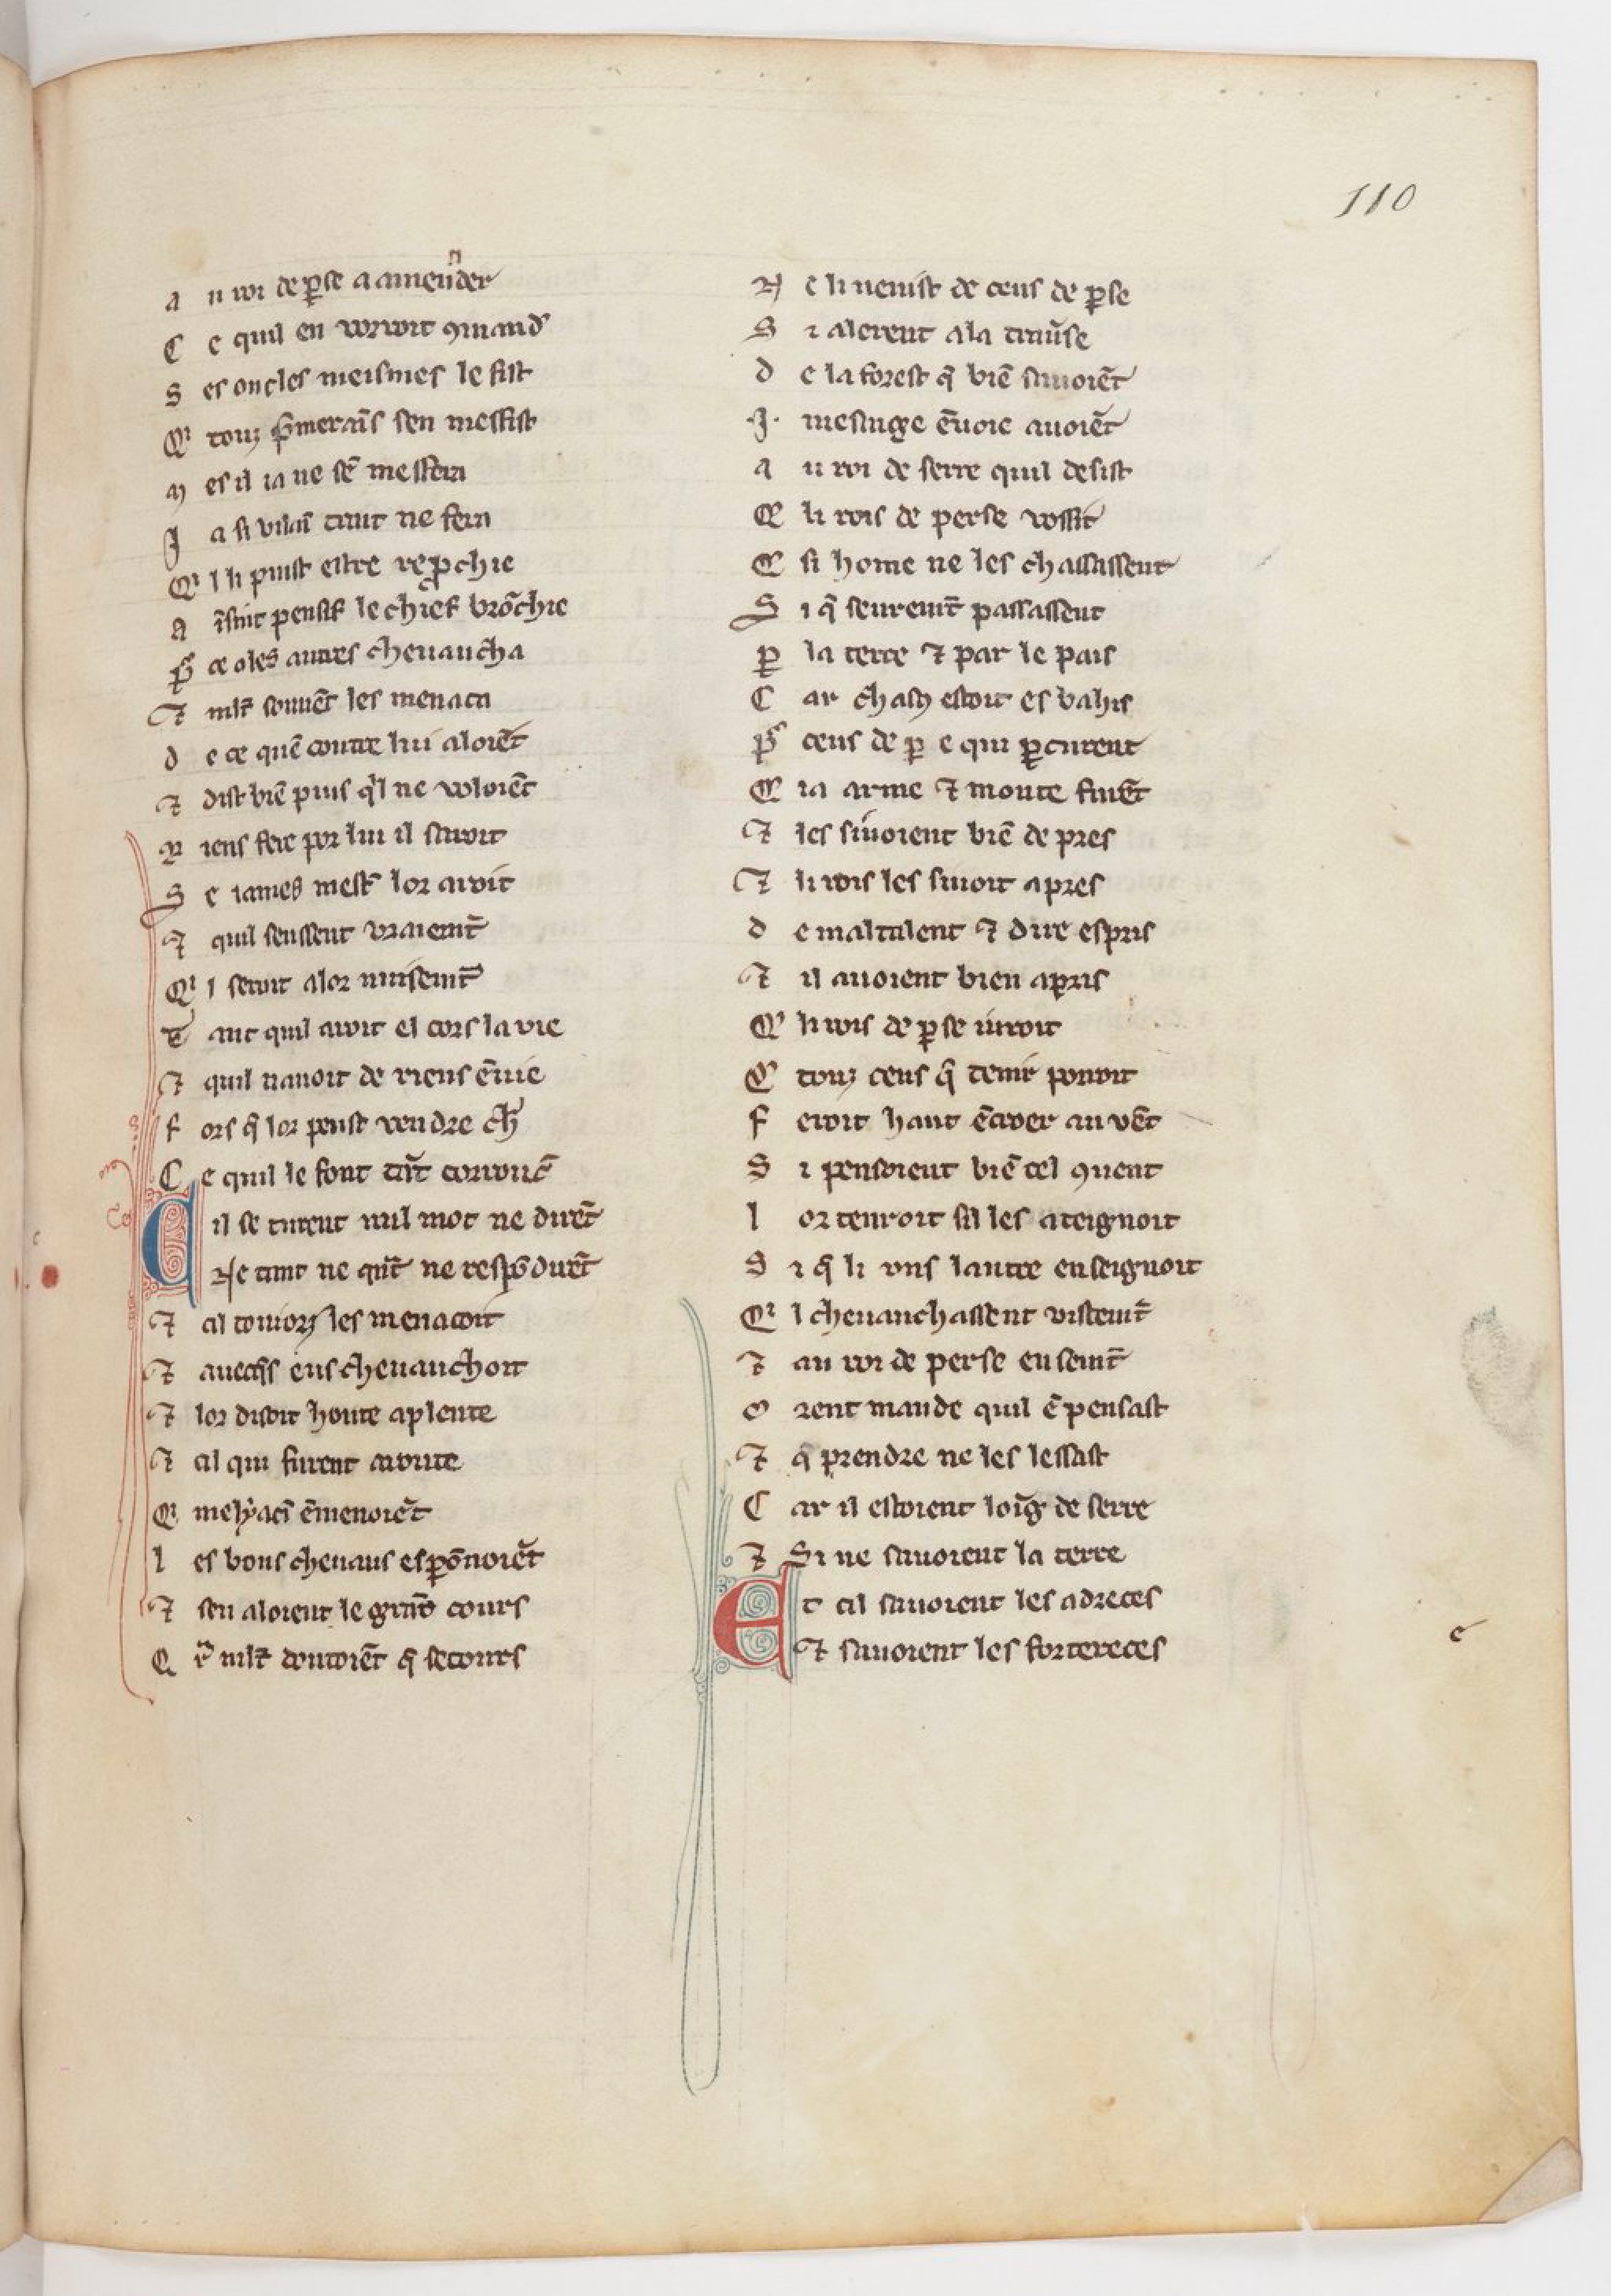 110
A u roi de p̱se a amender
C e quil en vorroit ꝯmand᷑
S es oncles meismes le fist
Qi touz p̱meraīs sen mesfist
M es il ia ne sē mesfera
J a si vilaī tant ne fera
Qi l li puist estre rep̱chie
A īsint pensif le chief brōchie
P̱s ce o les autres cheuaucha
⁊ mlt̄ souuēt les menaca
D e ce quē contre lui aloiēt
⁊ dist biē puis qͥl ne voloiēt
R iens fere por lui il sauoit
S e iames mest̄ lor auoit
⁊ quil seussent vraiem̄t
Qi l seroit a lor nuisem̄t
T ant quil auoit el cors la vie
⁊ quil nauoit de riens ēuie
F ors q̄ lor peust vendre ch̄
C e quil le font tāt corrouc̄
C il se turent nul mot ne dirēt
Ne tant ne qͣnt ne respōdirēt
⁊ cil touiorz les menacoit
⁊ auecq̄s eus cheuauchoit
⁊ lor disoit honte a plente
⁊ cil qui furent aroute
Qi melẏacī ēmenoiēt
L es bons cheuaus esp̱ōnoiēt
⁊ sen aloient le grāt cours
Q ͣr mlt̄ doutoiēt q̄ secours
N e li uenist de ceus de p̱se
S i alerent a la trau̓se
D e la forest q̄ biē sauoiēt
.J. mesage ēuoie auoiēt
A u roi de serre quil desist
Q̄ li rois de perse vossist
Q̄ si home ne les chassassent
S i q̄ seurem̄t passassent
P̱ la terre ⁊ par le pais
C ar chascꝯ estoit esbahis
P̱s ceus de p̱ e qui p̱curent
Q̄ ia arme ⁊ monte furēt
⁊ les siuoient biē de pres
⁊ li rois les siuoit apres
D e maltalent ⁊ dire espris
⁊ il auoient bien apris
Q̄ li rois de p̱se iuroit
Q̄ touz ceus q̄ tenir pouoit
F eroit haut ēcroer au vēt
S i pensoient biē tel ꝯuent
L or tenroit sil les ateignoit
S i q̄ li vns lautre enseignoit
Qi l cheuauchassent vistem̄t
⁊ au roi de perse ensem̄t
O rent mande quil ē pensast
⁊ q̄ prendre ne les lessast
C ar il estoient loīg de serre
⁊ Si ne sauoient la terre
E t cil sauoient les adreces
⁊ sauoient les fortereces
e